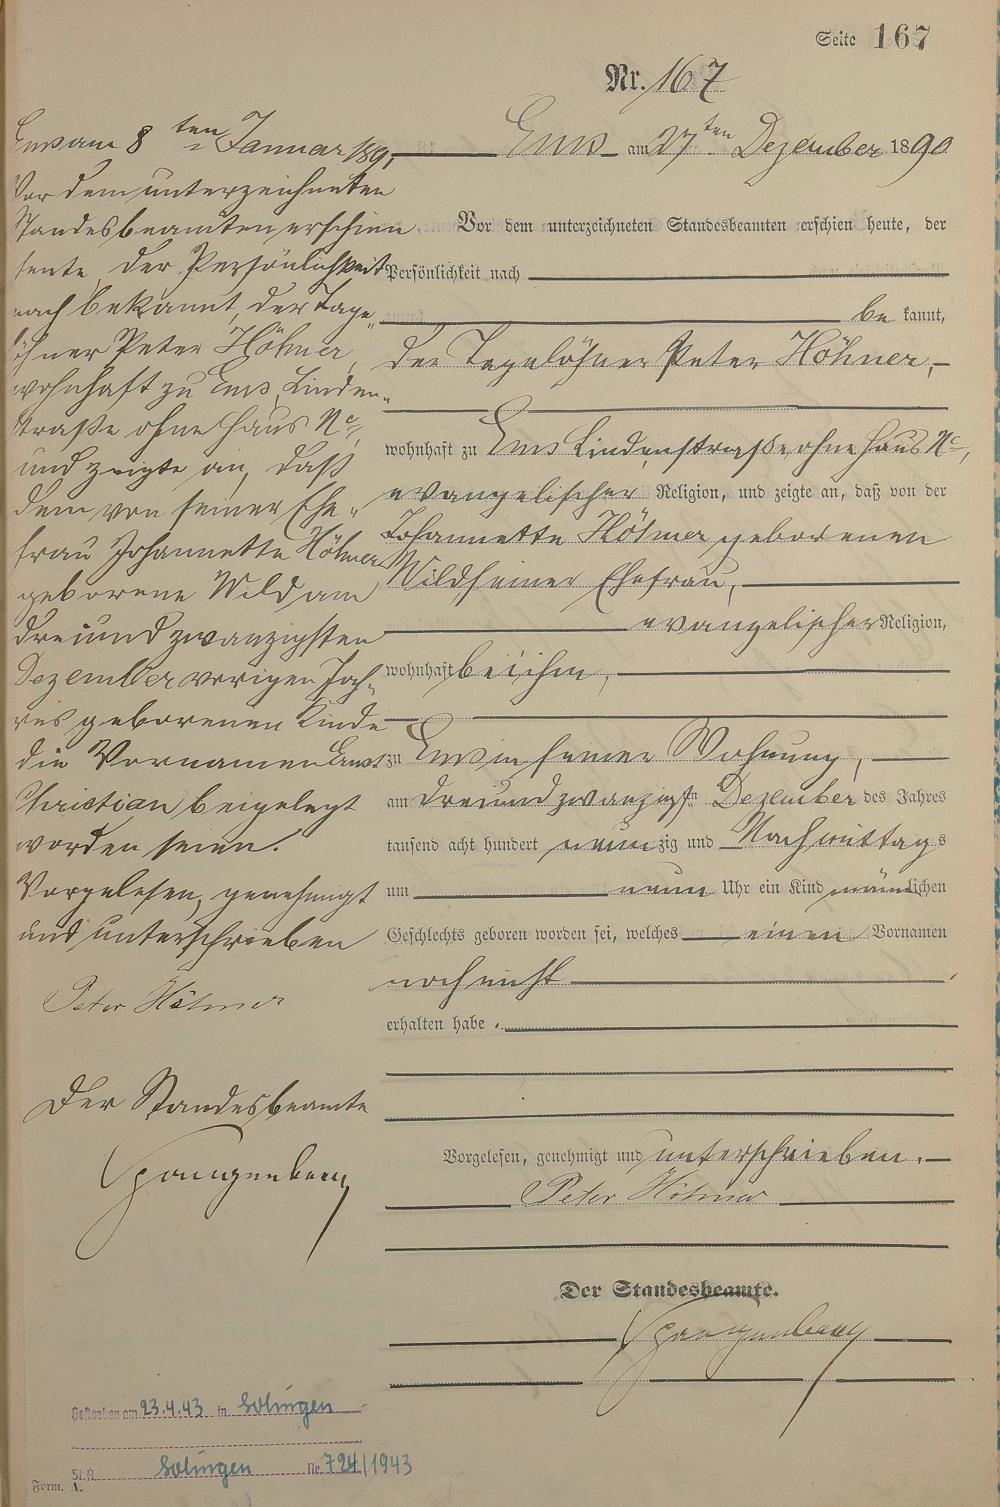 Seite 167
Nr. 167
Ems am 27ten Dezember 1890
Vor dem unterzeichneten Standesbeamten erschien heute, der
Persönlichkeit nach
be kannt,
der Tagelöhner Peter Höhner,
wohnhaft zu Ems Lindenstraße ohne Haus No,
evangelischer Religion, und zeigte an, daß von der
Johannette Höhner geborenen
Wild seiner Ehefrau,
evangelischer Religion,
wohnhaft bei ihm,
zu Ems in seiner Wohnung,
am dreiundzwanzigsten Dezember des Jahres
tausend acht hundert neunzig und Nachmittags
um neun Uhr ein Kind männlichen
Geschlechts geboren worden sei, welches einen Vornamen
noch nicht
erhalten habe.
Vorgelesen, genehmigt und unterschrieben.
Peter Höhner
Der Standesbeamte.
Spangenberg
Ems am 8ten Januar 1891
Vor dem unterzeichneten
Standesbeamten erschien
heute, der Persönlichkeit
nach bekannt, der Tage-
löhner Peter Höhner,
wohnhaft zu Ems, Linden-
straße ohne Haus No,
und zeigte an, daß
dem von seiner Ehe-
frau Johannette Höhner
geborene Wild am
dreiundzwanzigsten
Dezember vorigen Jah-
res geborenen Kinde
die Vornamen Ernst
Christian beigelegt
worden seien.
Vorgelesen, genehmigt
und unterschrieben
Peter Höhner
Der Standesbeamte
Spangenberg
Gestorben am 23.4.43 in Solingen
St.A. Solingen Nr. 724/1943
Form. A.